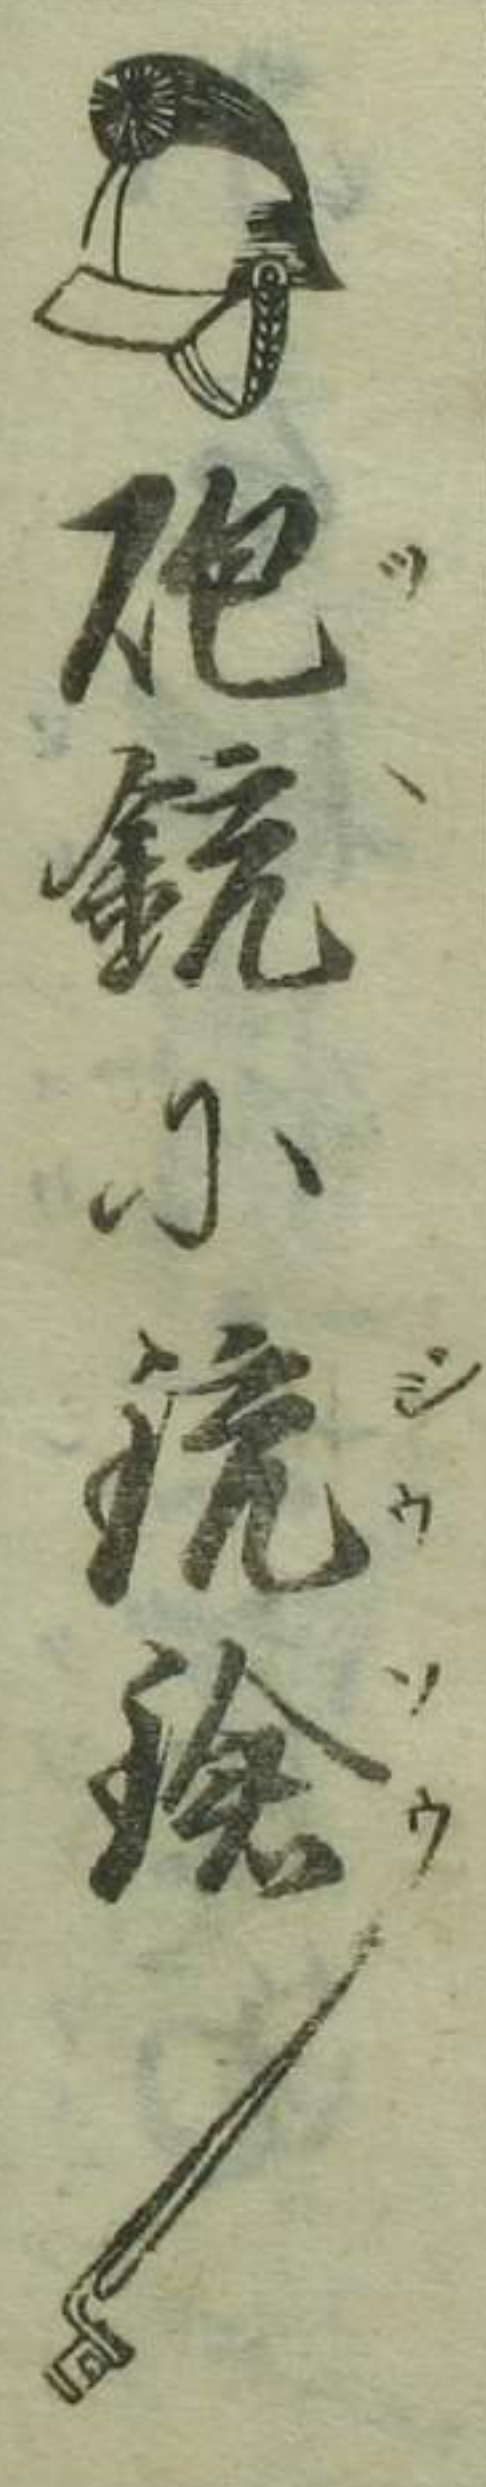 砲銃小銃鎗
ツヽ ジウソウ